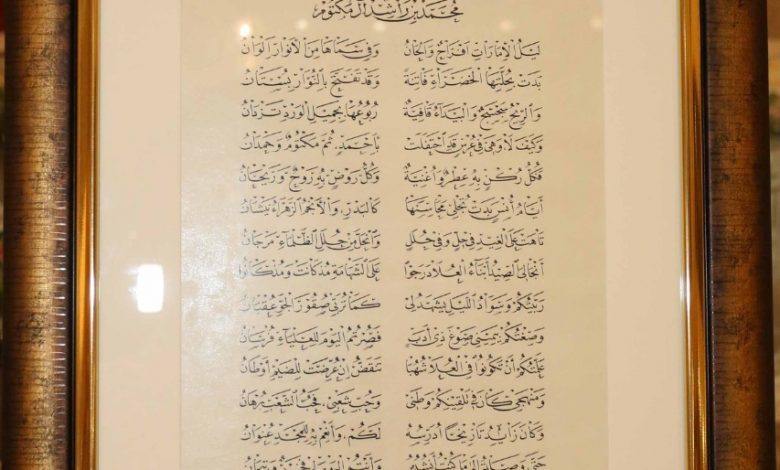 محمد بن راشد آل مكتوم
ليل الإمارات أفراح وألحان وفي سماها من الأنوار ألوان
بدت بحلتها الخضراء فاتنة وقد تفتح بالنوار بستان
والريح سجسج والبيداء قافية ربوعها بجميل الورد تزدان
وكيف لا وهي في عرس قد احتفلت بأحمد، ثم مكتوم وحمدان
فكل ركن به عطر وأغنية وكل روض به روح وريحان
أيام أنس بدت تجلى محاسنها كالبدر، والأنجم الزهراء نيشان
تاهت على الغيد في حلي وفي حلل وانجل من حلل الظلماء مرجان
أنجالي الصيد أبناء العلا درجوا على الشهامة مذ كانت ومذ كانوا
ربيتكم وسواد الليل يشهد لي كما تربي صقور الجو عقبان
وصغتكم بيميني صوغ ذي أدب فصرتم اليوم للعلياء فرسان
علمتكم أن تكونوا في العلا شهبا تنقض إن عرضت للضيم أوطان
ومنهجي كان في تلقينكم وطني وحب شعبي، فحب الشعب برهان
وكان زايد تاريخا أدرسه لكم، وأفهم به للمجد عنوان
حتى وصلت إلى ما كنت أنشده وأنتم اليوم في